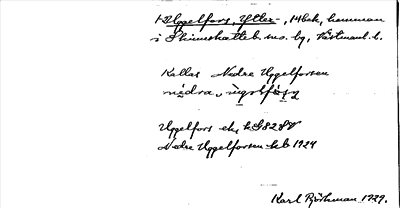 Uggelfors, Ytter-, 14 bek, hemman
i Skinnskatteb. sn. o. by, Västmanl. l.
Kallas Nedre Uggelforsen
nedra
Uggelfors ek. k S82 SV
Nedre Uggelforsen kb 1924
Karl Björkman 1929.